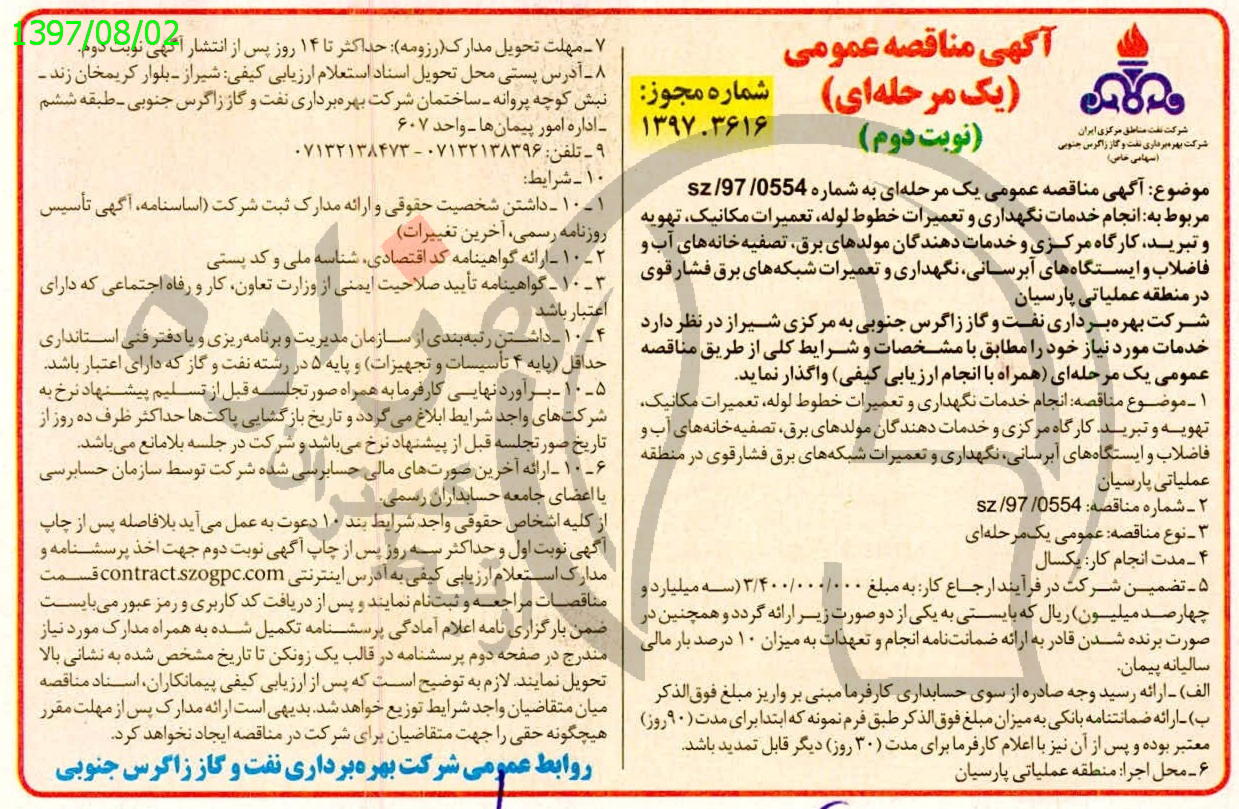 1397/08/02
شرکت نفت مناطق مرکزی ایران
شرکت بهره‌برداری نفت و گاز زاگرس جنوبی
(سهامی خاص)
آگهی مناقصه عمومی
(یک مرحله‌ای)
(نوبت دوم)
شماره مجوز:
۱۳۹۷.۳۶۱۶
موضوع: آگهی مناقصه عمومی یک مرحله‌ای به شماره sz/97/0554
مربوط به: انجام خدمات نگهداری و تعمیرات خطوط لوله، تعمیرات مکانیک، تهویه
و تبرید، کارگاه مرکزی و خدمات دهندگان مولدهای برق، تصفیه‌خانه‌های آب و
فاضلاب و ایستگاه‌های آبرسانی، نگهداری و تعمیرات شبکه‌های برق فشار قوی
در منطقه عملیاتی پارسیان
شرکت بهره‌برداری نفت و گاز زاگرس جنوبی به مرکزی شیراز در نظر دارد
خدمات مورد نیاز خود را مطابق با مشخصات و شرایط کلی از طریق مناقصه
عمومی یک مرحله‌ای (همراه با انجام ارزیابی کیفی) واگذار نماید.
۱ ـ موضوع مناقصه: انجام خدمات نگهداری و تعمیرات خطوط لوله، تعمیرات مکانیک،
تهویه و تبرید. کارگاه مرکزی و خدمات دهندگان مولدهای برق، تصفیه‌خانه‌های آب و
فاضلاب و ایستگاه‌های آبرسانی، نگهداری و تعمیرات شبکه‌های برق فشار قوی در منطقه
عملیاتی پارسیان
۲ ـ شماره مناقصه: sz/97/0554
۳ ـ نوع مناقصه: عمومی یک‌مرحله‌ای
۴ ـ مدت انجام کار: یکسال
۵ ـ تضمین شرکت در فرآیند ارجاع کار: به مبلغ ۳/۴۰۰/۰۰۰/۰۰۰ (سه میلیارد و
چهارصد میلیون) ریال که بایستی به یکی از دو صورت زیر ارائه گردد و همچنین در
صورت برنده شدن قادر به ارائه ضمانت‌نامه انجام و تعهدات به میزان ۱۰ درصد بار مالی
سالیانه پیمان.
الف) ـ ارائه رسید وجه صادره از سوی حسابداری کارفرما مبنی بر واریز مبلغ فوق‌الذکر
ب) ـ ارائه ضمانتنامه بانکی به میزان مبلغ فوق‌الذکر طبق فرم نمونه که ابتدا برای مدت (۹۰ روز)
معتبر بوده و پس از آن نیز با اعلام کارفرما برای مدت (۳۰ روز) دیگر قابل تمدید باشد.
۶ ـ محل اجرا: منطقه عملیاتی پارسیان
۷ ـ مهلت تحویل مدارک (رزومه): حداکثر تا ۱۴ روز پس از انتشار آگهی نوبت دوم.
۸ ـ آدرس پستی محل تحویل اسناد استعلام ارزیابی کیفی: شیراز ـ بلوار کریمخان زند ـ
نبش کوچه پروانه ـ ساختمان شرکت بهره‌برداری نفت و گاز زاگرس جنوبی ـ طبقه ششم
ـ اداره امور پیمان‌ها ـ واحد ۶۰۷
۹ ـ تلفن: ۰۷۱۳۲۱۳۸۳۹۶ - ۰۷۱۳۲۱۳۸۴۷۳
۱۰ ـ شرایط:
۱ ـ ۱۰ ـ داشتن شخصیت حقوقی و ارائه مدارک ثبت شرکت (اساسنامه، آگهی تأسیس
روزنامه رسمی، آخرین تغییرات)
۲ ـ ۱۰ ـ ارائه گواهینامه کد اقتصادی، شناسه ملی و کد پستی
۳ ـ ۱۰ ـ گواهینامه تأیید صلاحیت ایمنی از وزارت تعاون، کار و رفاه اجتماعی که دارای
اعتبار باشد
۴ ـ ۱۰ ـ داشتن رتبه‌بندی از سازمان مدیریت و برنامه‌ریزی و یا دفتر فنی استانداری
حداقل (پایه ۴ تأسیسات و تجهیزات) و پایه ۵ در رشته نفت و گاز که دارای اعتبار باشد.
۵ ـ ۱۰ ـ برآورد نهایی کارفرما به همراه صورتجلسه قبل از تسلیم پیشنهاد نرخ به
شرکت‌های واجد شرایط ابلاغ می‌گردد و تاریخ بازگشایی پاکت‌ها حداکثر ظرف ده روز از
تاریخ صورتجلسه قبل از پیشنهاد نرخ می‌باشد و شرکت در جلسه بلامانع می‌باشد.
۶ ـ ۱۰ ـ ارائه آخرین صورت‌های مالی حسابرسی شده شرکت توسط سازمان حسابرسی
یا اعضای جامعه حسابداران رسمی.
از کلیه اشخاص حقوقی واجد شرایط بند ۱۰ دعوت به عمل می‌آید بلافاصله پس از چاپ
آگهی نوبت اول و حداکثر سه روز پس از چاپ آگهی نوبت دوم جهت اخذ پرسشنامه و
مدارک استعلام ارزیابی کیفی به آدرس اینترنتی contract.szogpc.com قسمت
مناقصات مراجعه و ثبت‌نام نمایند و پس از دریافت کد کاربری و رمز عبور می‌بایست
ضمن بارگزاری نامه اعلام آمادگی پرسشنامه تکمیل شده به همراه مدارک مورد نیاز
مندرج در صفحه دوم پرسشنامه در قالب یک زونکن تا تاریخ مشخص شده به نشانی بالا
تحویل نمایند. لازم به توضیح است که پس از ارزیابی کیفی پیمانکاران، اسناد مناقصه
میان متقاضیان واجد شرایط توزیع خواهد شد. بدیهی است ارائه مدارک پس از مهلت مقرر
هیچگونه حقی را جهت متقاضیان برای شرکت در مناقصه ایجاد نخواهد کرد.
روابط عمومی شرکت بهره‌برداری نفت و گاز زاگرس جنوبی